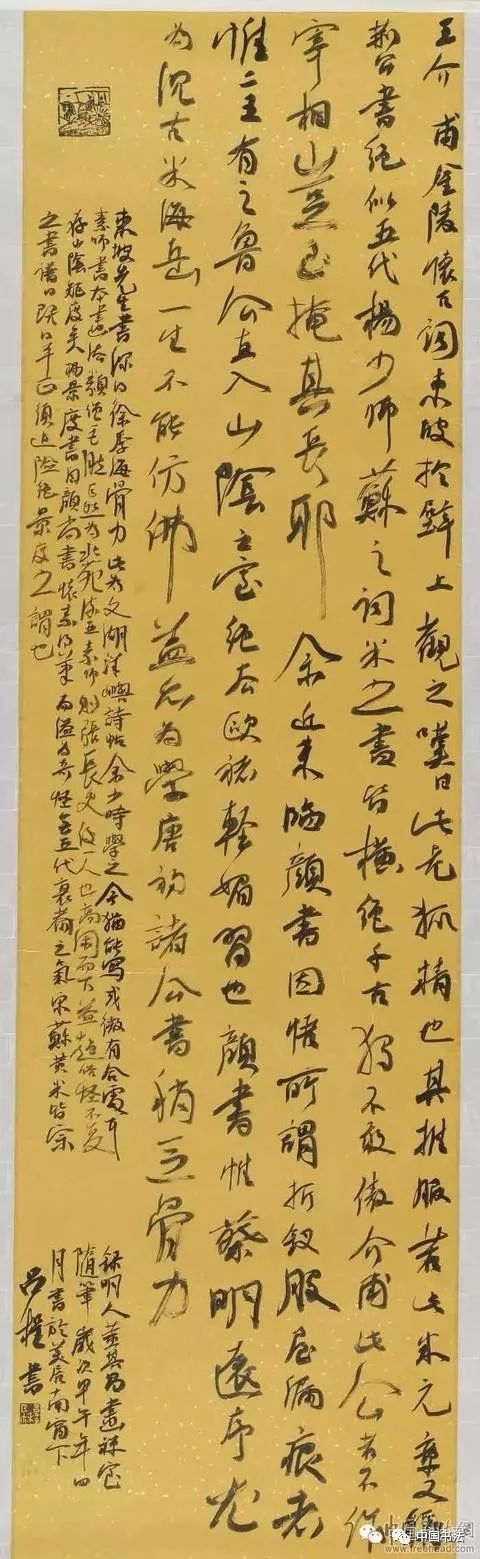 王介甫金陵懷古詞東坡於壁上觀之嘆曰此老狐精也其推服若此米元章又稱
荊公書絕似五代楊少師蘇之詞米之書皆橫絕千古獨不敢傲介甫此公者不作
宰相豈掩其長耶 余近來臨顏書因悟所謂折釵股屋漏痕者
惟二王有之魯公直入山陰之室絕去歐褚輕媚習也顏書惟蔡明遠序尤
為沉古米海岳一生不能仿佛 蓋尤為學唐初諸公書稍乏骨力
東坡先生書深得徐季海骨力此為文湖洋嶼詩帖余少時學之今猶能寫或微有合處耳
素師書本畫法類僧巨然巨然為北苑流亞素師則張長史後一人也高閑而下益趨俗怪不復
存山陰矩度矣楊景度書自顏尚書懷素得筆而溢為奇怪無五代衰薾之氣宋蘇黃米皆宗
之書譜曰既得平正須追險絕景度之謂也
錄明人董其昌畫禪室
隨筆 歲次甲午年四
月書於美居南窗下
呂 書
中国书法
www.freehead.com